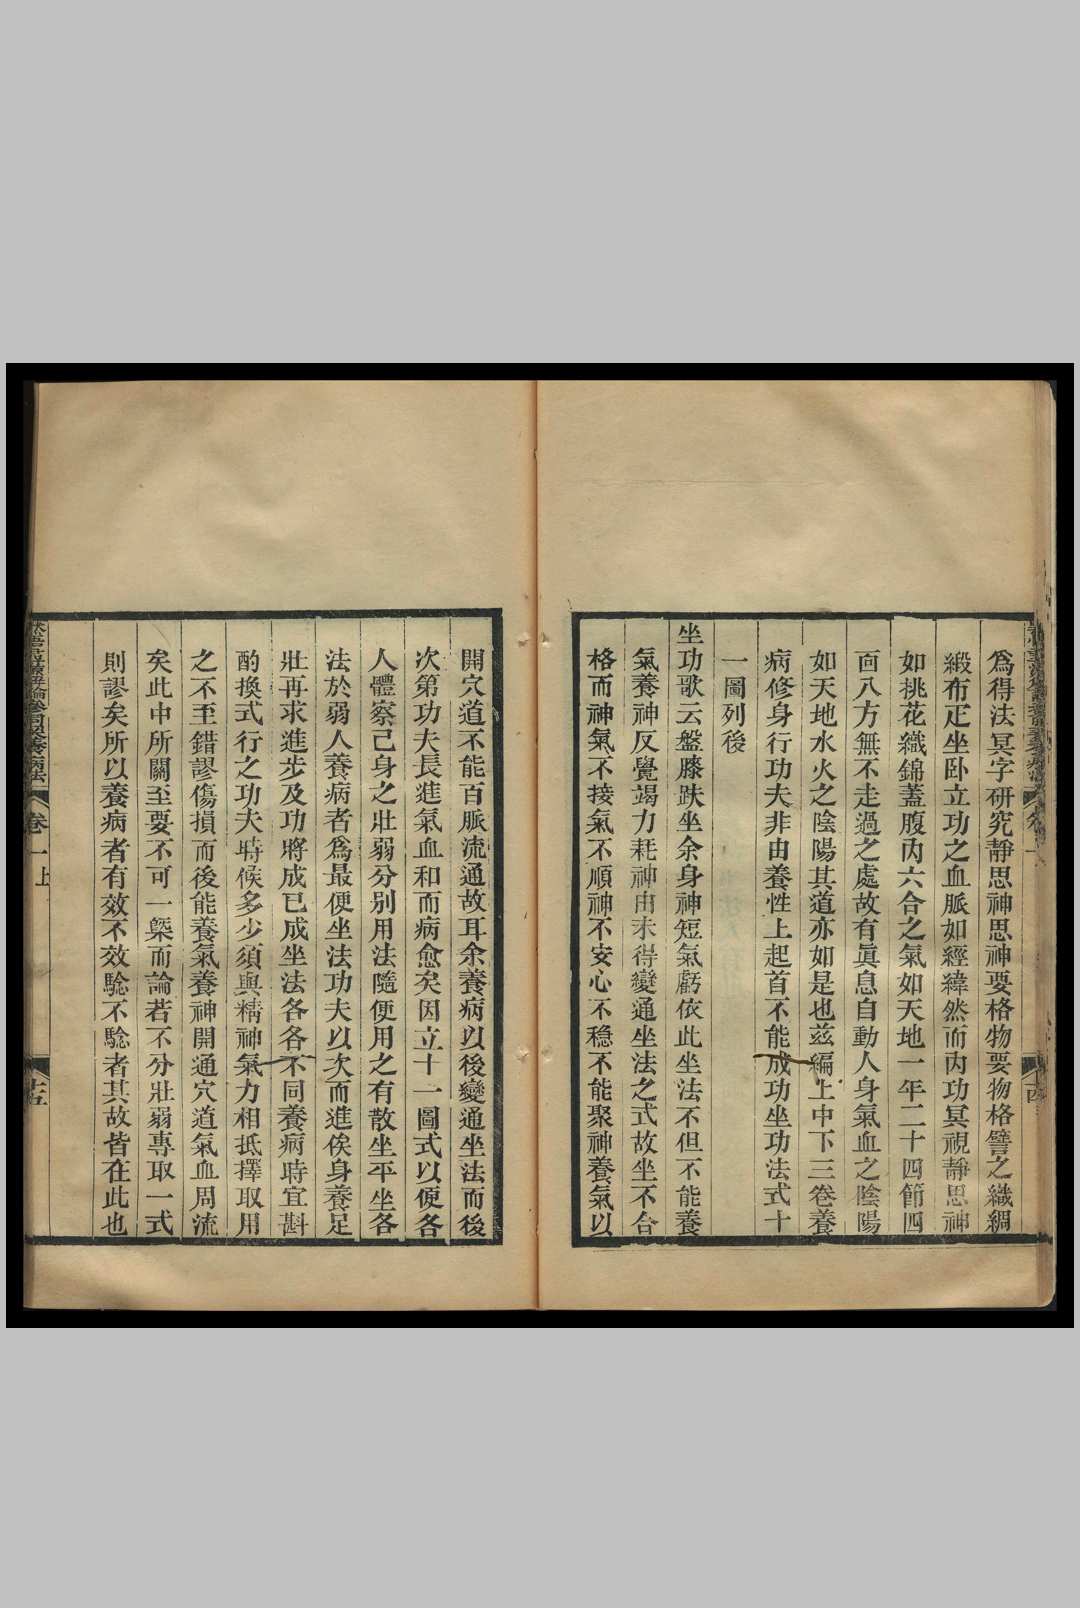 爲得法冥字硏究靜思神思神要格物要物格譬之織綢
緞布疋坐卧立功之血脈如經緯然而內功冥視靜思神
如挑花織錦蓋腹內六合之氣如天地一年二十四節四
面八方無不走過之處故有眞息自動人身氣血之陰陽
如天地水火之陰陽其道亦如是也兹編上中下三卷養
病修身行功夫非由養性上起首不能成功坐功法式十
一圖列後
坐功歌云盤膝趺坐余身神短氣虧依此坐法不但不能養
氣養神反覺竭力耗神由未得變通坐法之式故坐不合
格而神氣不接氣不順神不安心不穩不能聚神養氣以
開穴道不能百脈流通故耳余養病以後變通坐法而後
次第功夫長進氣血和而病愈矣因立十一圖式以便各
人體察己身之壯弱分別用法隨便用之有散坐平坐各
法於弱人養病者爲最便坐法功夫以次而進俟身養足
壯再求進步及功將成已成坐法各各不同養病時宜斟
酌換式行之功夫時候多少須與精神氣力相抵擇取用
之不至錯謬傷損而後能養氣養神開通穴道氣血周流
矣此中所關至要不可一槩而論若不分壯弱專取一式
則謬矣所以養病者有效不效騐不騐者其故皆在此也
卷一上
十五